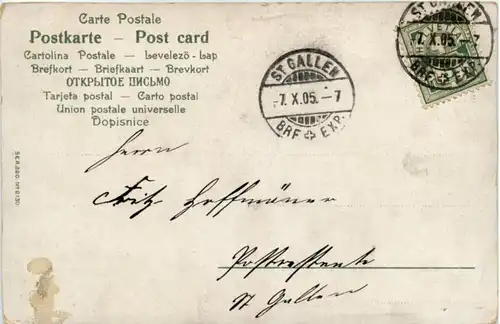 Carte Postale
Postkarte — Post card
Cartolina Postale — Levelezö-Lap
Brefkort — Briefkaart — Brevkort
ОТКРЫТОЕ ПИСЬМО
Tarjeta postal — Carto postal
Union postale universelle
Dopisnice
ST GALLEN
-7. X. 05. - 7
BRF EXP.
ST GALLEN
7. X. 05. - 7
BRF EXP.
Herrn
Fritz Hoffmänner
Postrestante
St Gallen